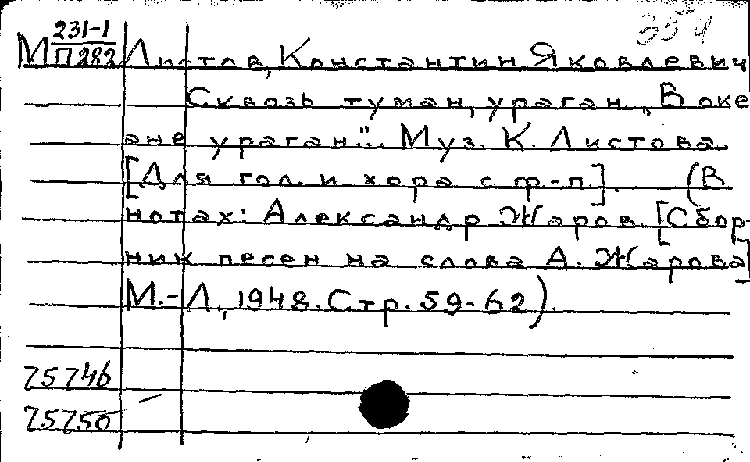 354
М 231-1
П 282 Листов, Константин Яковлевич
Сквозь туман, ураган „В оке
ане ураган". Муз. К. Листова
[Для гол. и хора с ф-п.]. (В
нотах: Александр Жаров. [Сбор-
ник песен на слова А. Жарова]
М.-Л., 1948. Стр. 59-62)
75746
75750